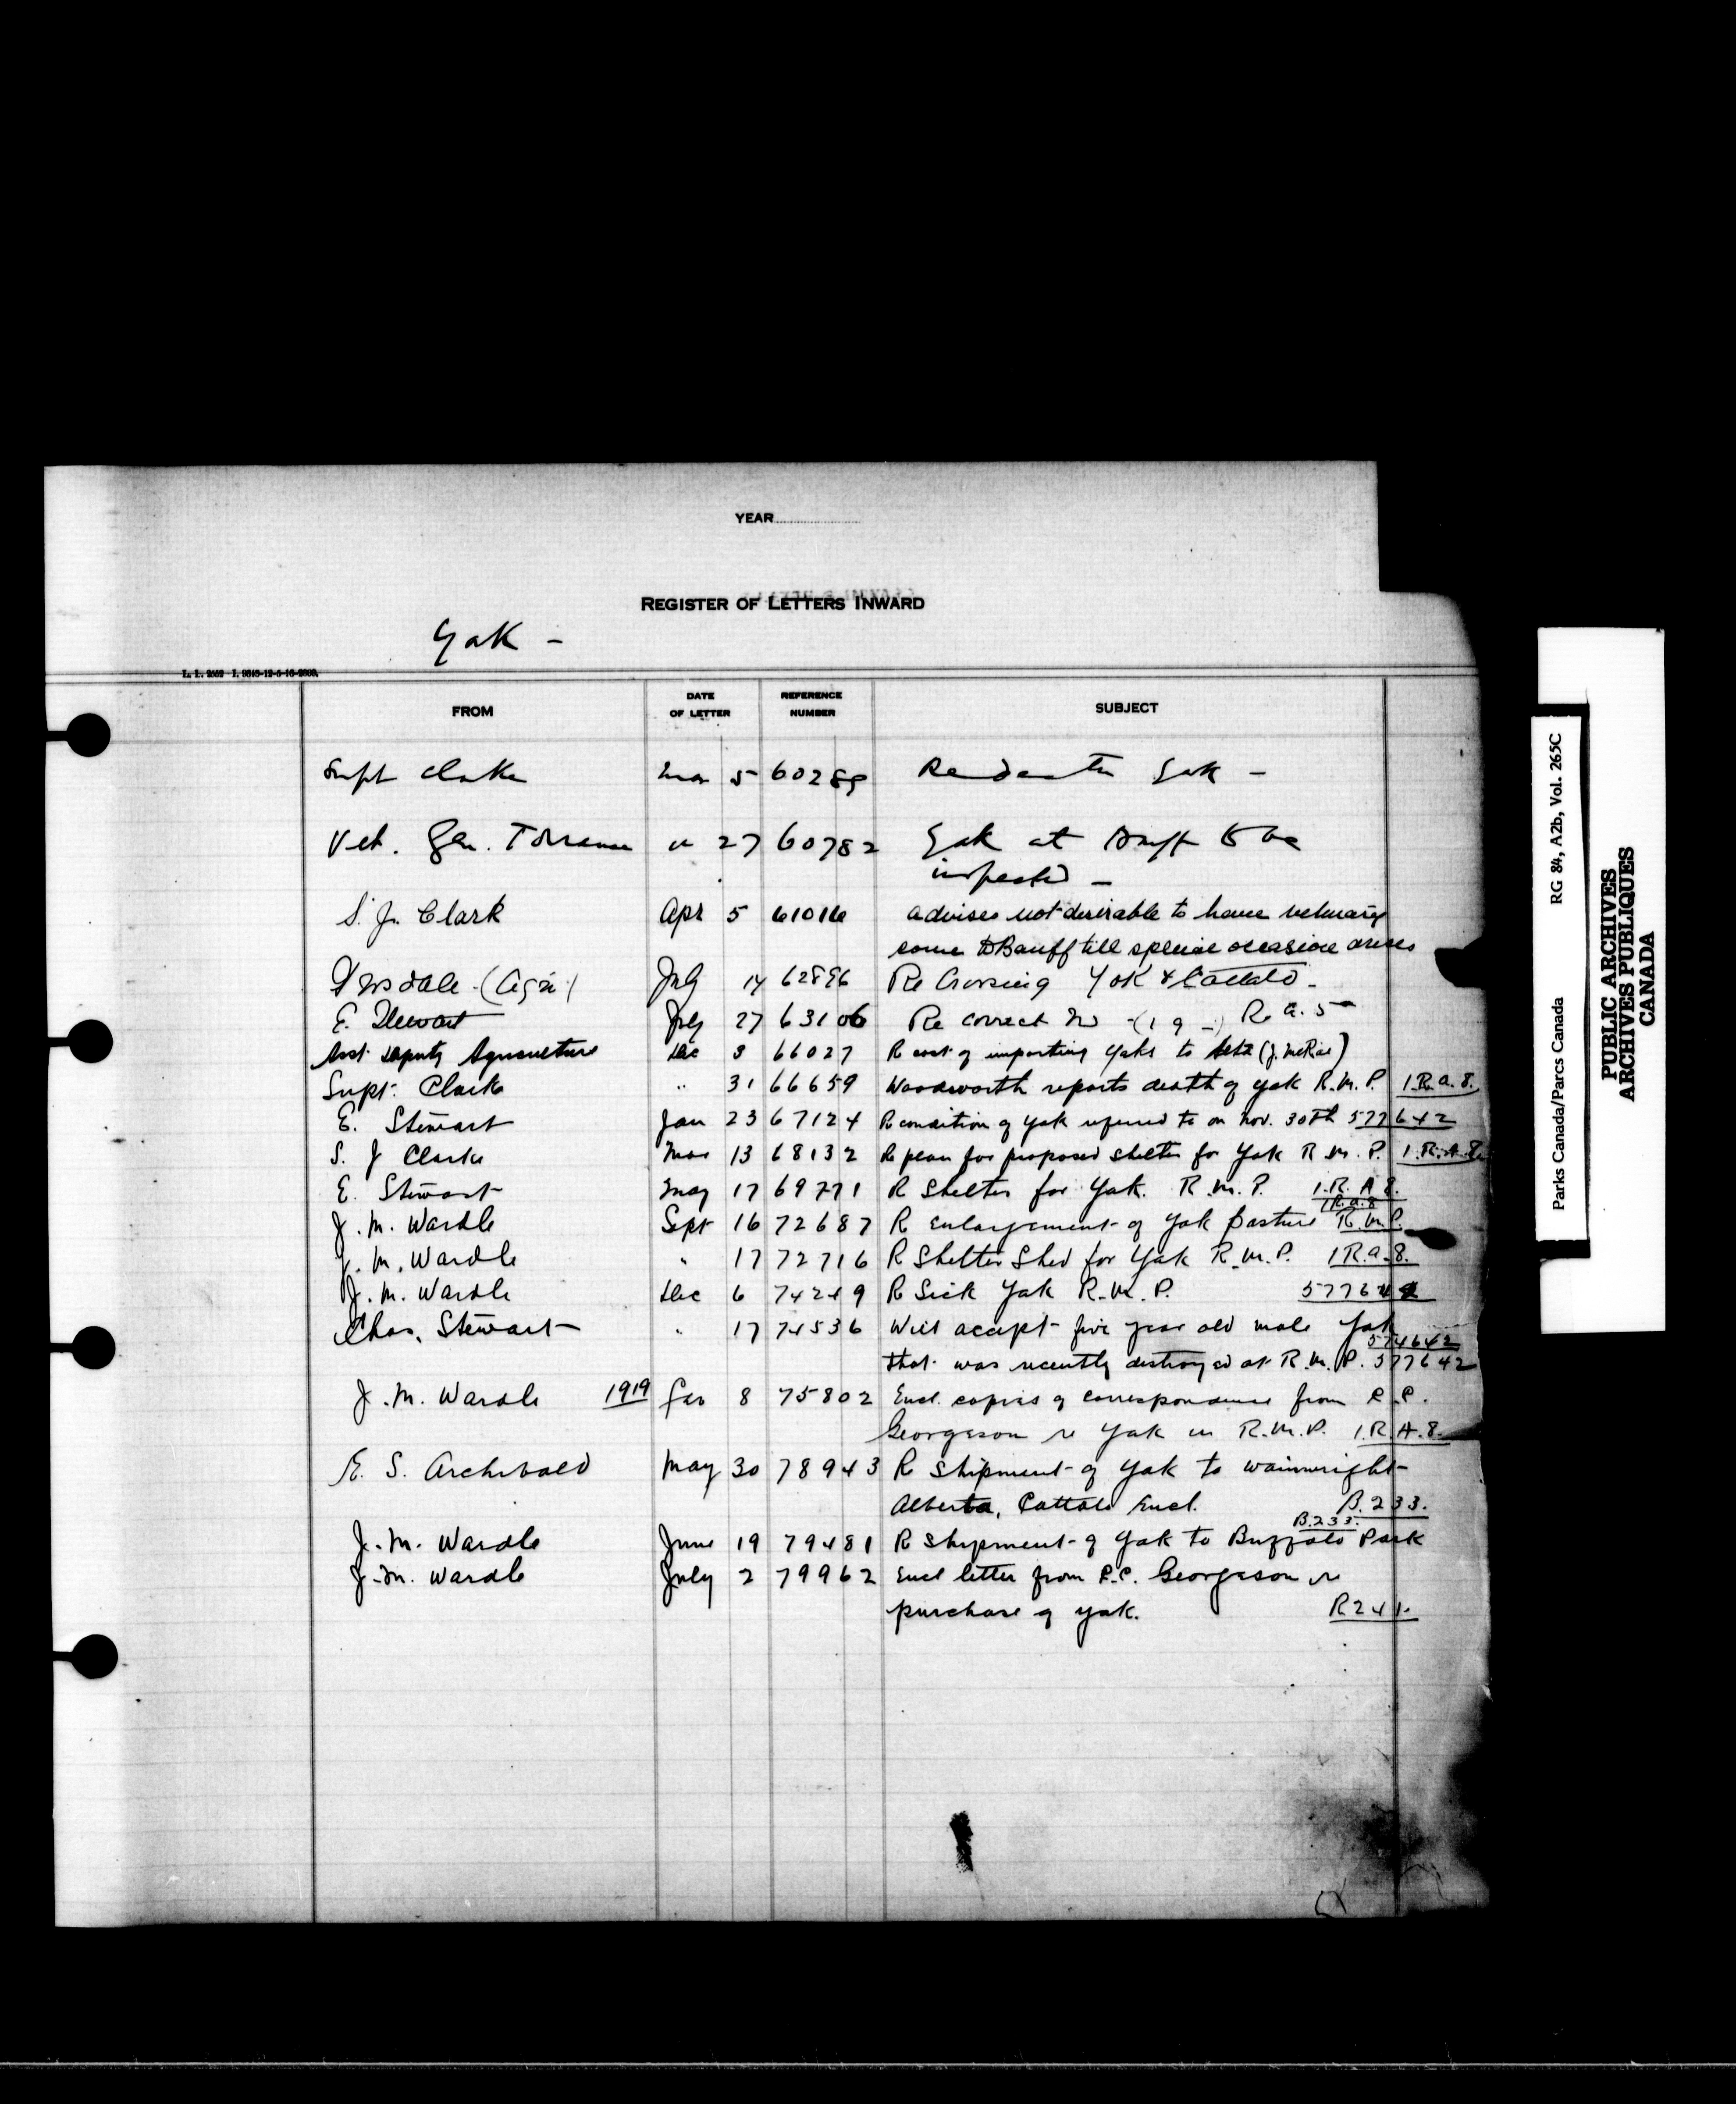 YEAR
REGISTER OF LETTERS INWARD
Yak -
FROM DATE OF LETTER REFERENCE NUMBER SUBJECT
Supt Clarke Mar 5 60289 Re death Yak -
Vet. Gen. Torrance " 27 60782 Yak at Banff to be
inspected -
S. J. Clark Apr 5 61016 advises not desirable to have vetinary
come to Banff till special ocassion arises
July 14 62896 Re Crossing Yak & Cattalo -
E. Stewart July 27 63106 Re correct R. a. 5
Asst Deputy Agriculture Dec 3 66027 R cost of importing Yaks to Alta (J. McRae)
Supt. Clark " 31 66659 Woodworth reports death of yak R.M.P. 1.R.a.8.
E. Stewart Jan 23 67124 R condition of Yak referred to on Nov. 30th 577642
S. J Clarke Mar 13 68132 R plan for proposed shelter for Yak R.M.P. 1.R.A.8.
E. Stewart May 17 69771 R Shelter for Yak. R.M.P. 1.R.A 8.
1R.a.8
J. M. Wardle Sept 16 72687 R Enlargement of Yak pasture R.M.P.
J. M. Wardle " 17 72716 R Shelter Shed for Yak R.M.P. 1R.a.8.
J. M. Wardle Dec 6 74249 R Sick Yak R.M.P. 577642
Chas. Stewart " 17 74536 Will accept five year old male Yak
574642
that was recently destroyed at R.M.P. 577642
J. M. Wardle 1919 Jan 8 75802 Encl. copies of correspondence from
Georgeson re Yak in R.M.P. 1.R.A.8.
E. S. Archibald May 30 78943 R Shipment of Yak to Wainwright
Alberta, Cattalo Encl. B.233.
B.233.
J. M. Wardle June 19 79481 R Shipment of Yak to Buffalo Park
J. M. Wardle July 2 79962 Encl letter from Georgeson re
purchase of yak. R241.
Parks Canada/Parcs Canada RG 84, A2b, Vol. 265C
PUBLIC ARCHIVES
ARCHIVES PUBLIQUES
CANADA